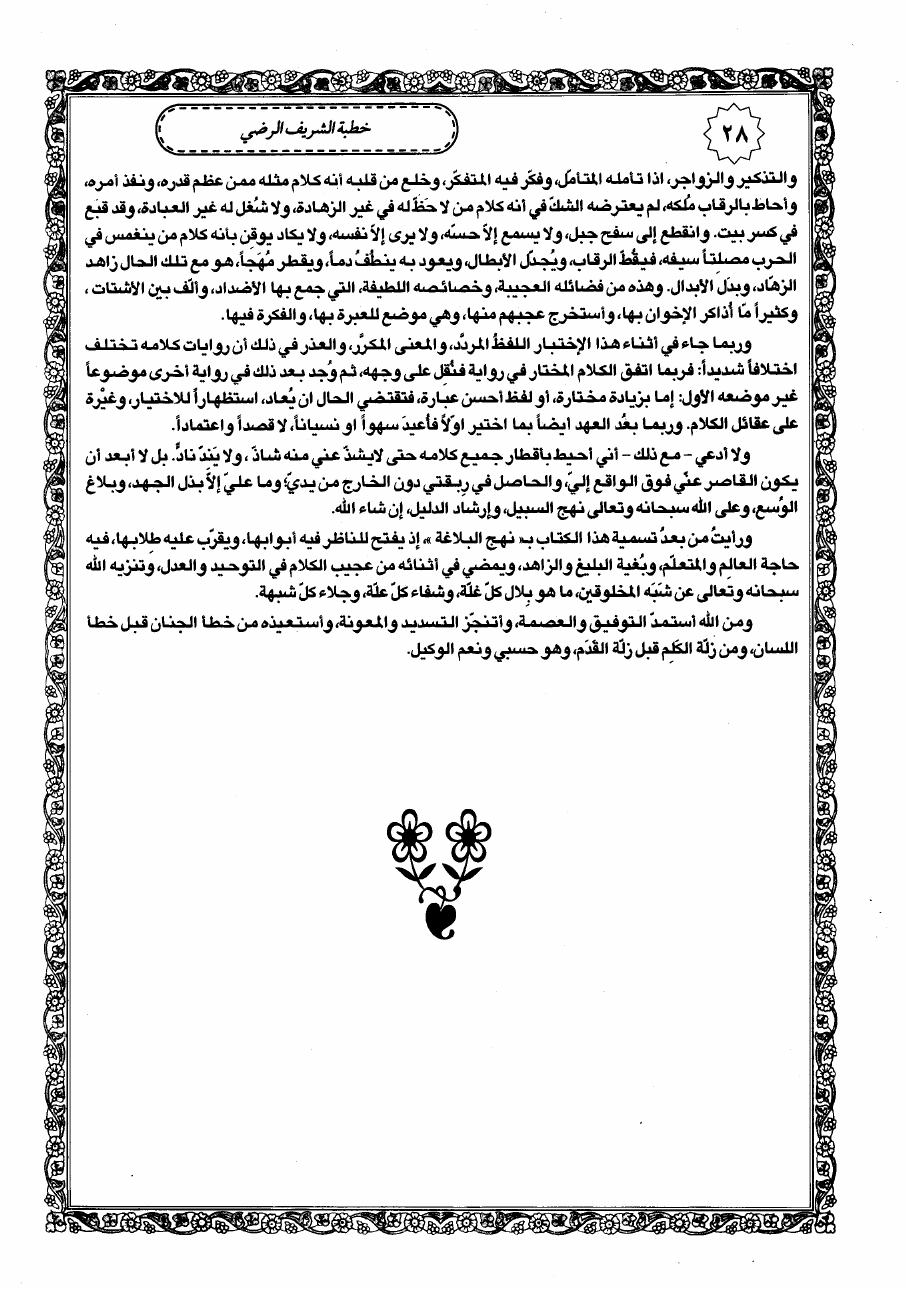 ٢٨
خطبة الشريف الرضي
والتذكير والزواجر، اذا تأمله المتأمل، وفكّر فيه المتفكّر، وخلع من قلبه أنه كلام مثله ممن عظم قدره، ونفذ أمره،
وأحاط بالرقاب مُلكه، لم يعترضه الشكّ في أنه كلام من لا حَظّ له في غير الزهادة، ولا شُغل له غير العبادة، وقد قبَع
في كسر بيت. وانقطع إلى سفح جبل، ولا يسمع إلاّ حسّه، ولا يرى إلاّ نفسه، ولا يكاد يوقن بأنه كلام من ينغمس في
الحرب مصلِتاً سيفه، فيقُطّ الرقاب، ويُجدّل الأبطال، ويعود به ينطُفُ دماً، ويقطر مُهَجاً، هو مع تلك الحال زاهد
الزهّاد، وبدَل الأبدال. وهذه من فضائله العجيبة، وخصائصه اللطيفة، التي جمع بها الأضداد، وألّف بين الأشتات ،
وكثيراً مّا أُذاكر الإخوان بها، وأستخرج عجبهم منها، وهي موضع للعبرة بها، والفكرة فيها.
وربما جاء في أثناء هذا الإختيار اللفظُ المردّد، والمعنى المكرَّر، والعذر في ذلك أن روايات كلامه تختلف
اختلافاً شديداً: فربما اتفق الكلام المختار في رواية فنُقِل على وجهه، ثم وُجد بعد ذلك في رواية أخرى موضوعاً
غير موضعه الأول: إما بزيادة مختارة، أو لفظ أحسن عبارة، فتقتضي الحال ان يُعاد، استظهاراً للاختيار، وغيْرة
على عقائل الكلام. وربما بعُد العهد أيضاً بما اختير اوّلاً فأُعيدَ سهواً او نسياناً، لا قصداً واعتماداً.
ولا أدعي – مع ذلك – أني أحيط بأقطار جميع كلامه حتى لايشذّ عني منه شاذّ ، ولا يَنِدّ نادٌّ. بل لا أبعد أن
يكون القاصر عنّي فوق الواقع إليّ، والحاصل في رِبقتي دون الخارج من يديّ؛ وما عليّ إلاَّ بذل الجهد، وبلاغ
الوُسع، وعلى الله سبحانه وتعالى نهج السبيل، وإرشاد الدليل، إن شاء الله.
ورأيتُ من بعدُ تسمية هذا الكتاب بـ« نهج البلاغة »، إذ يفتح للناظر فيه أبوابها، ويقرّب عليه طِلابها، فيه
حاجة العالِم والمتعلّم، وبُغية البليغ والزاهد، ويمضي في أثنائه من عجيب الكلام في التوحيد والعدل، وتنزيه الله
سبحانه وتعالى عن شَبَه المخلوقين، ما هو بِلال كلّ غلّة، وشفاء كلّ علّة، وجلاء كلّ شبهة.
ومن الله أستمدّ التوفيق والعصمة، وأتنجّز التسديد والمعونة، وأستعيذه من خطأ الجنان قبل خطأ
اللسان، ومن زلّة الكَلِم قبل زلّة القَدَم، وهو حسبي ونعم الوكيل.